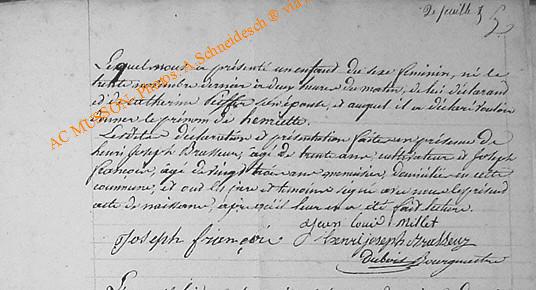 2e feuillet
Lequel nous a présenté un enfant du sexe féminin, né le
trente novembre dernier à deux heures du matin, de lui déclarant
et de Catherine son épouse, et auquel il a déclaré vouloir
donner le prénom de henriette.
Lesdites déclaration et présentation faites en présence de
henri Joseph Brasseur, agé de trente ans, cultivateur et Joseph
françois, agé de vingt trois ans menuisier, domiciliés en cette
commune, et ont les père et témoins signé avec nous le présent
acte de naissance, après qu'il leur en a été fait lecture.
Jean Louis Millet
Joseph françois henri joseph Brasseur
Dubois Bourgmestre
AC MUSSON- Photos A. Schneidesch ® via